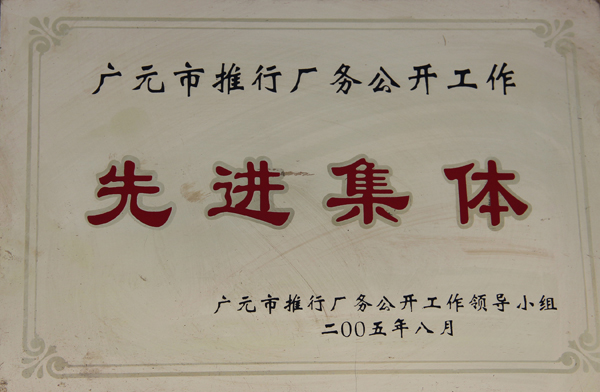 广元市推行厂务公开工作
先进集体
广元市推行厂务公开工作领导小组
二00五年八月